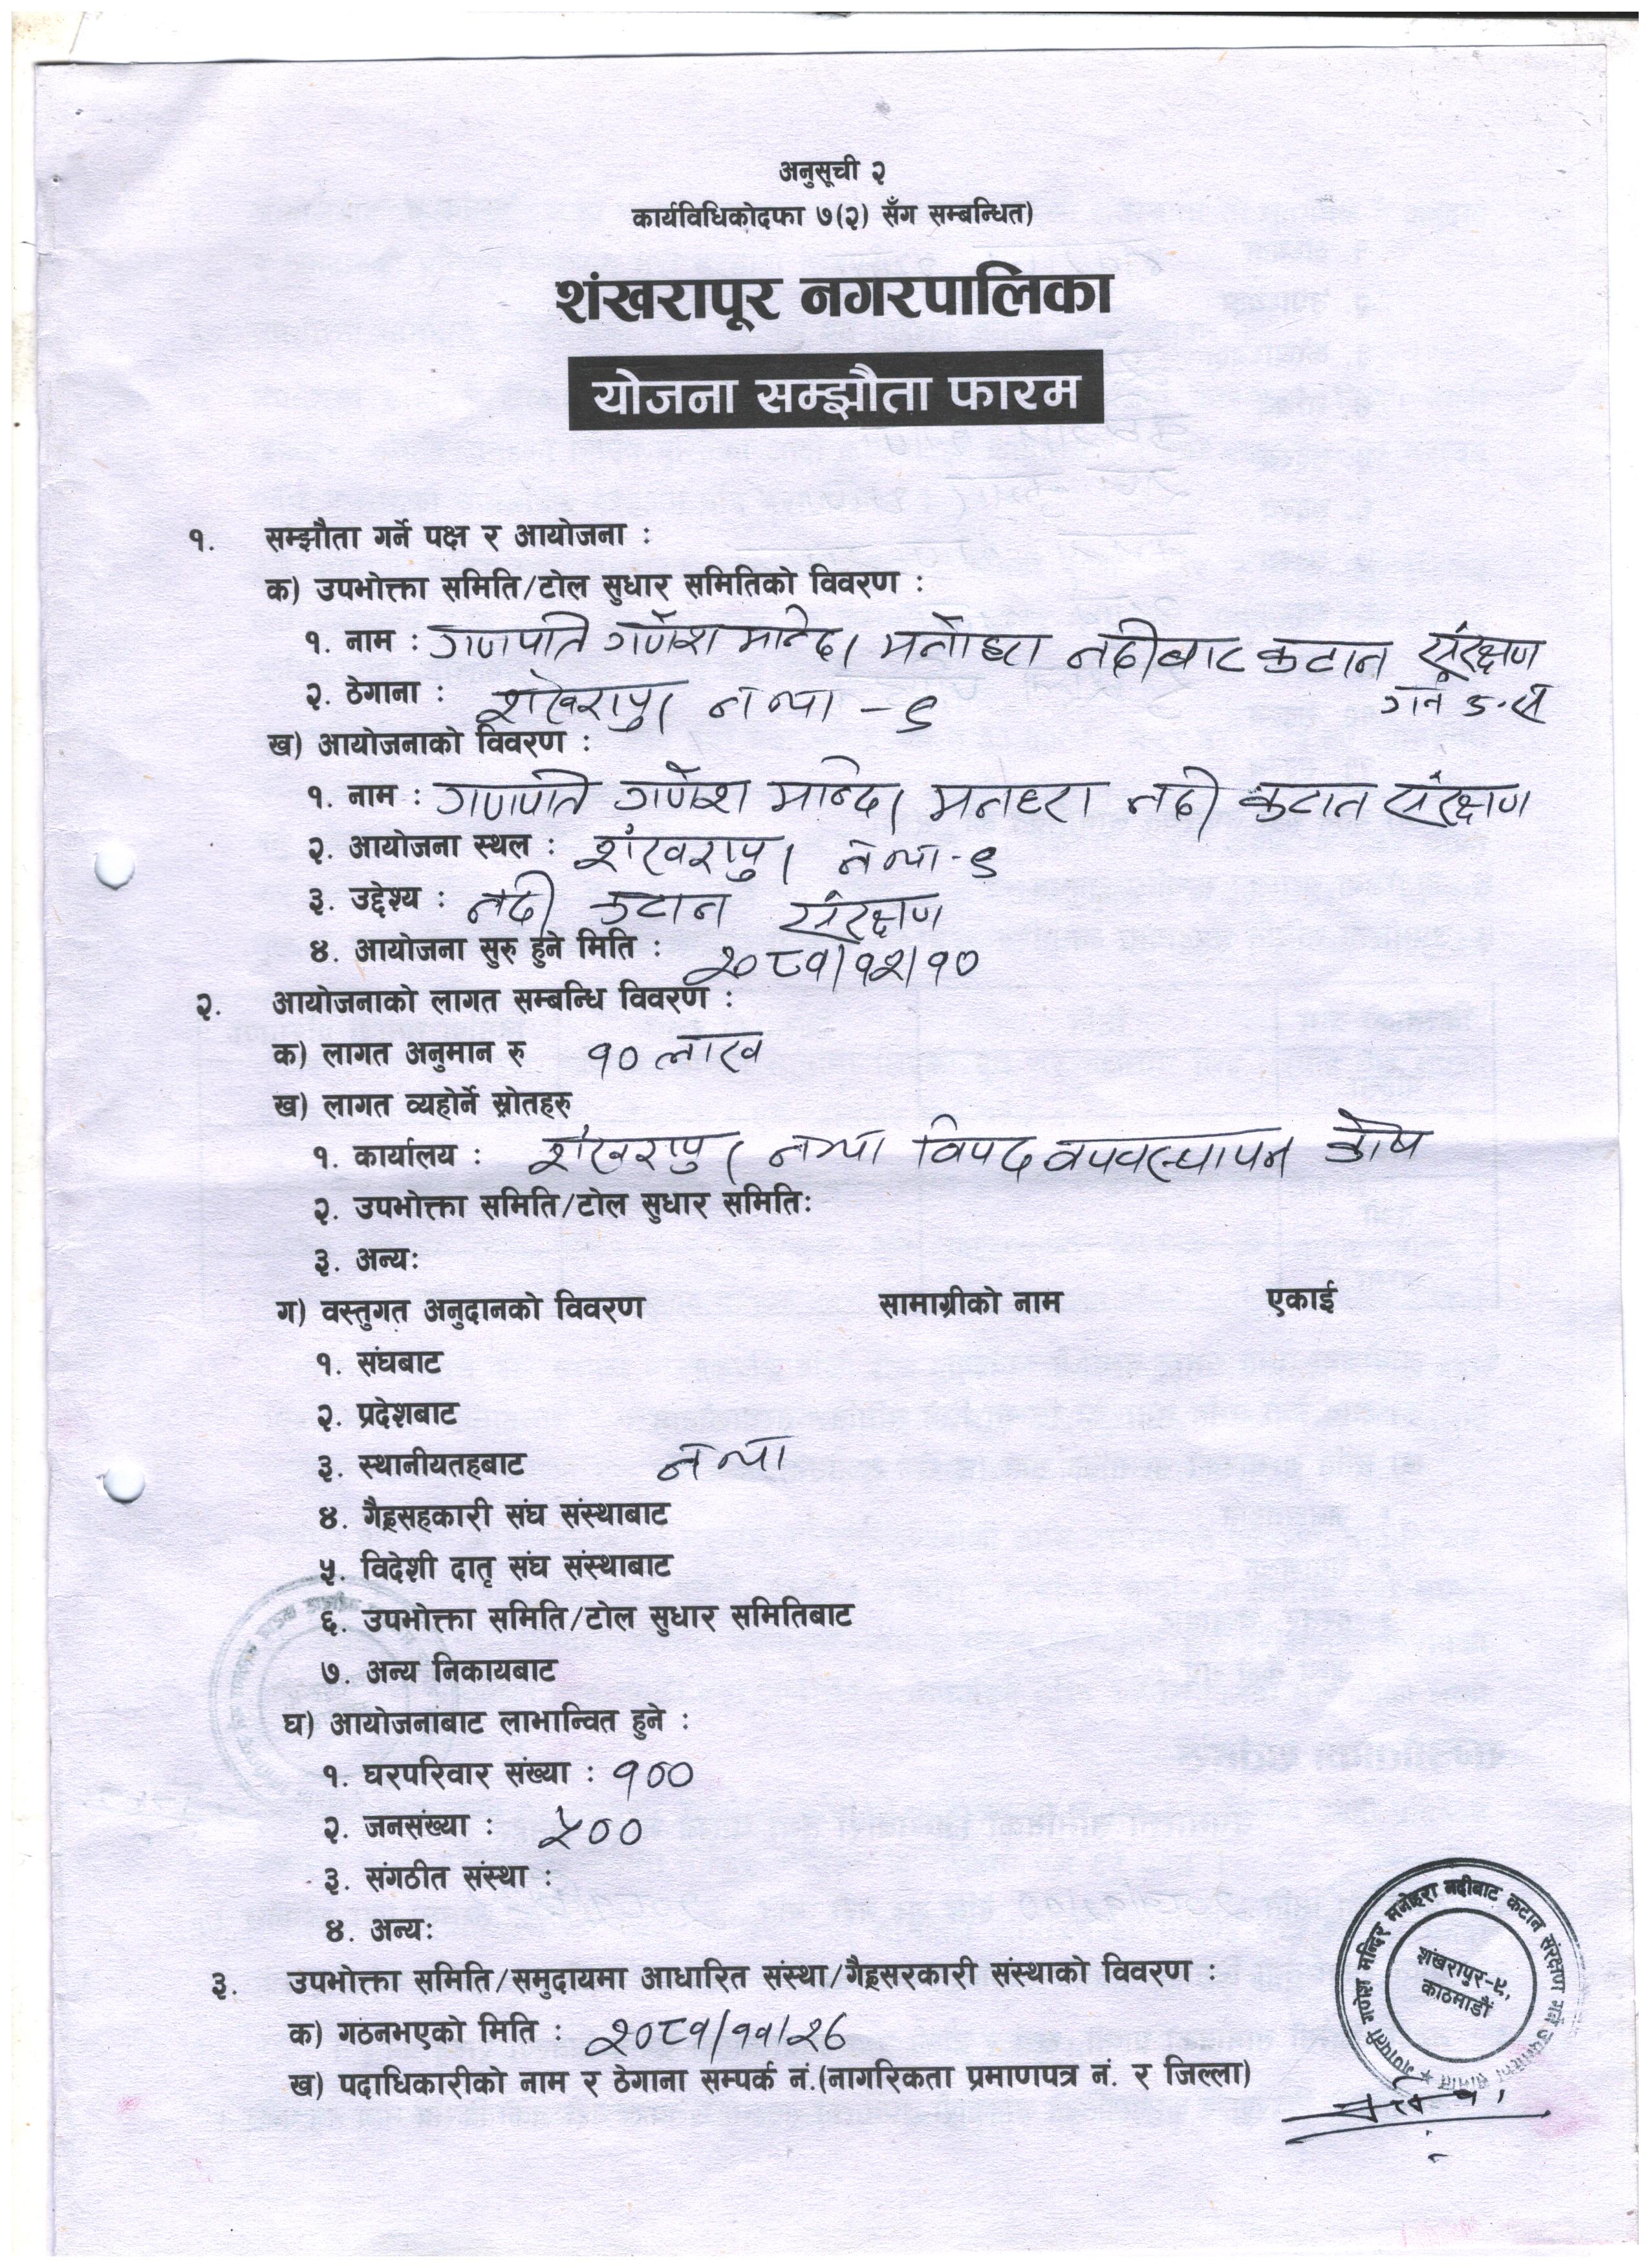 अनुसूची २
कार्यविधिकोदफा ७(२) सँग सम्बन्धित)
शंखरापूर नगरपालिका
योजना सम्झौता फारम
१. सम्झौता गर्ने पक्ष र आयोजना :
क) उपभोक्ता समिति/टोल सुधार समितिको विवरण :
१. नाम : गणपति गणेश मन्दिर मनोहरा नदीबाट कटान संरक्षण
गर्ने उ.स
२. ठेगाना : शंखरापुर न.पा - ९
ख) आयोजनाको विवरण :
१. नाम : गणपति गणेश मन्दिर मनहरा नदी कटान संरक्षण
२. आयोजना स्थल : शंखरापुर न.पा - ९
३. उद्देश्य : नदी कटान संरक्षण
४. आयोजना सुरु हुने मिति : २०८१/१२/१०
२. आयोजनाको लागत सम्बन्धि विवरण :
क) लागत अनुमान रु १० लाख
ख) लागत व्यहोर्ने स्रोतहरु
१. कार्यालय : शंखरापुर न.पा विपद व्यवस्थापन कोष
२. उपभोक्ता समिति/टोल सुधार समिति:
३. अन्य:
ग) वस्तुगत अनुदानको विवरण सामाग्रीको नाम एकाई
१. संघबाट
२. प्रदेशबाट
३. स्थानीयतहबाट न.पा
४. गैह्रसहकारी संघ संस्थाबाट
५. विदेशी दातृ संघ संस्थाबाट
६. उपभोक्ता समिति/टोल सुधार समितिबाट
७. अन्य निकायबाट
घ) आयोजनाबाट लाभान्वित हुने :
१. घरपरिवार संख्या : १००
२. जनसंख्या : ५००
३. संगठीत संस्था :
४. अन्य:
३. उपभोक्ता समिति/समुदायमा आधारित संस्था/गैह्रसरकारी संस्थाको विवरण :
क) गठनभएको मिति : २०८१/११/२६
ख) पदाधिकारीको नाम र ठेगाना सम्पर्क नं.(नागरिकता प्रमाणपत्र नं. र जिल्ला)
गणपती गणेश मन्दिर मनोहरा नदीबाट कटान संरक्षण गर्ने उपभोक्ता समिति
शंखरापुर-९,
काठमाडौं